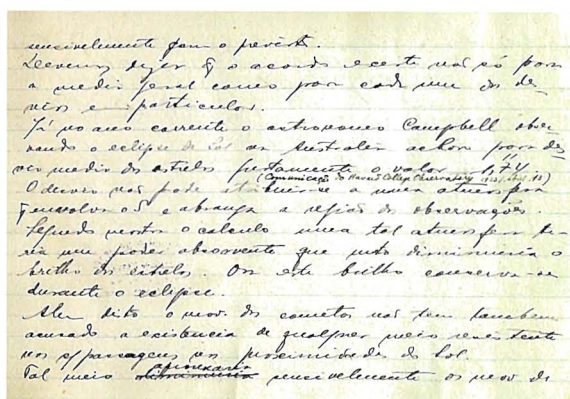 sensivelmente com o previsto.
Devemos dizer q̃ o acordo existe não só para
a media geral como para cada um dos des-
vios em particular.
Já no ano corrente o astronomo Campbell obser-
vando o eclipse do Sol na Australia achou para des-
vio medio das estrelas justamente o valor 1",74
(Comunicação do Harvard College Observatory 1923,
O desvio não pode atribuir-se a uma atmosfera
q̃ envolva o e abranja a região das observações.
Segundo mostra o calculo uma tal atmosfera te-
ria um poder absorvente que muito diminuiria o
brilho das estrelas. Ora este brilho conserva-se
durante o eclipse.
Alem disto o mov. dos cometas não tem tambem
acusado a existencia de qualquer meio resistente
nas s/ passagens nas proximidades do Sol.
Tal meio apressaria sensivelmente os mov. de